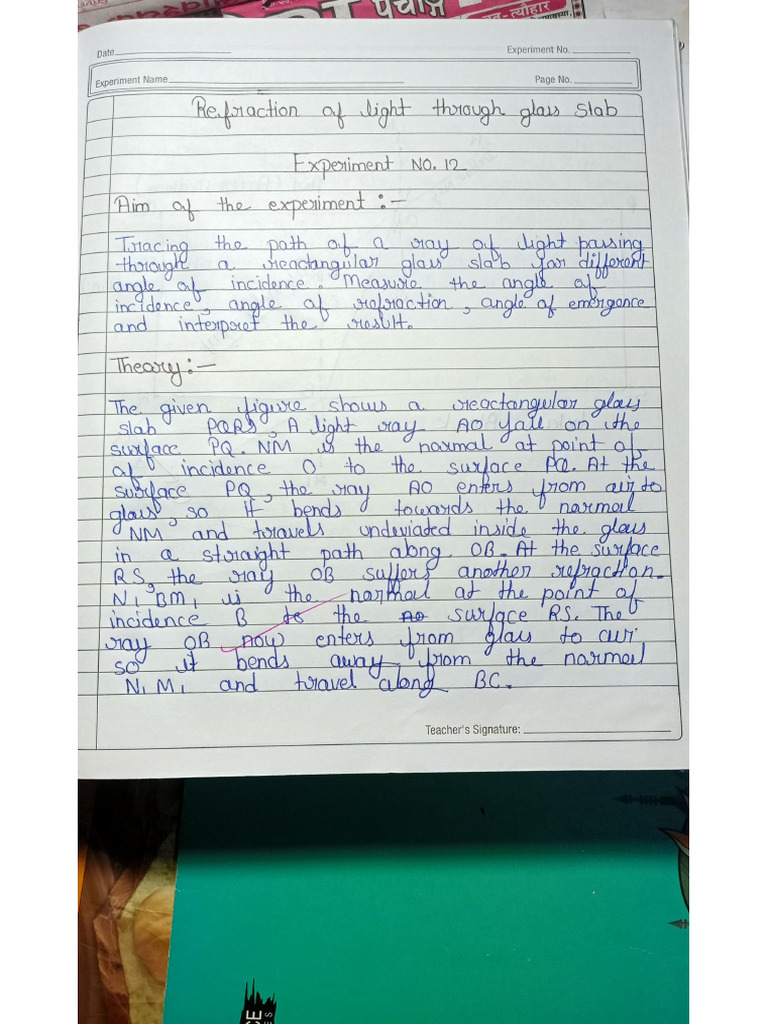 पंचांग
व्रत-त्यौहार
Date
Experiment No.
Experiment Name
Page No.
Refraction of light through glass slab
Experiment NO. 12
Aim of the experiment :-
Tracing the path of a ray of light passing
through a reactangular glass slab for different
angle of incidence. Measure the angle of
incidence, angle of refraction, angle of emergence
and interpret the result.
Theory :-
The given figure shows a reactangular glass
slab PQRS, A light ray AO fall on the
surface PQ. NM is the normal at point of
of incidence O to the surface PQ. At the
surface PQ, the ray AO enters from air to
glass, so it bends towards the normal
NM and travels undeviated inside the glass
in a straight path along OB. At the surface
RS, the ray OB suffers another refraction.
N1BM1 is the normal at the point of
incidence B to the AO surface RS. The
ray OB now enters from glass to air
so it bends away from the normal
N1M1 and travel along BC.
Teacher's Signature: